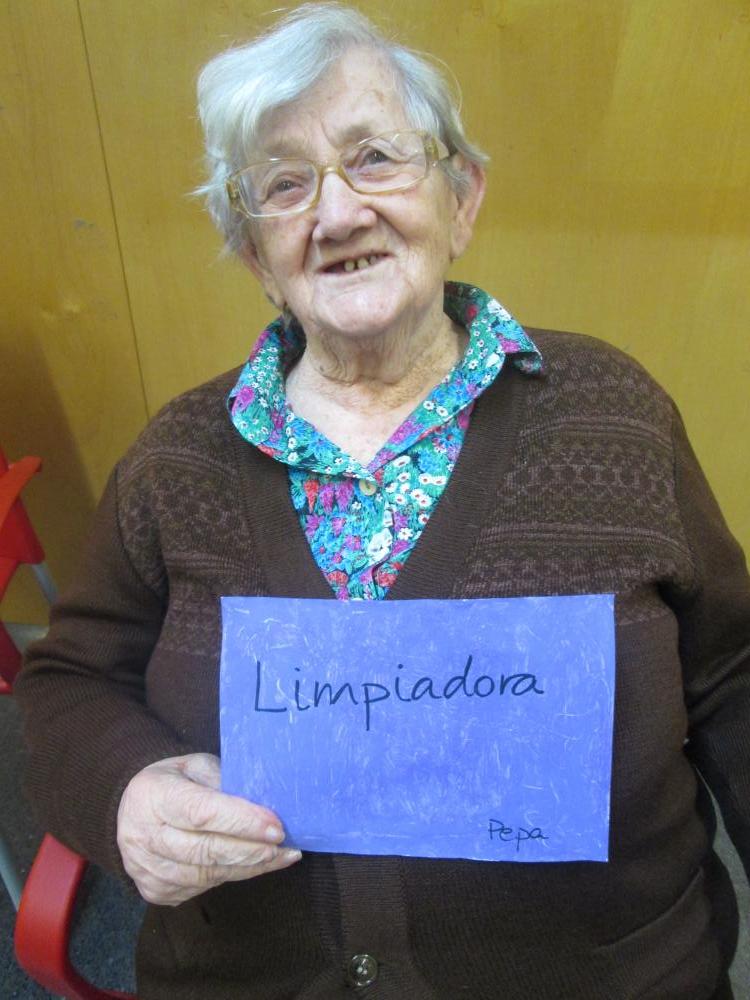 Limpiadora
Pepa